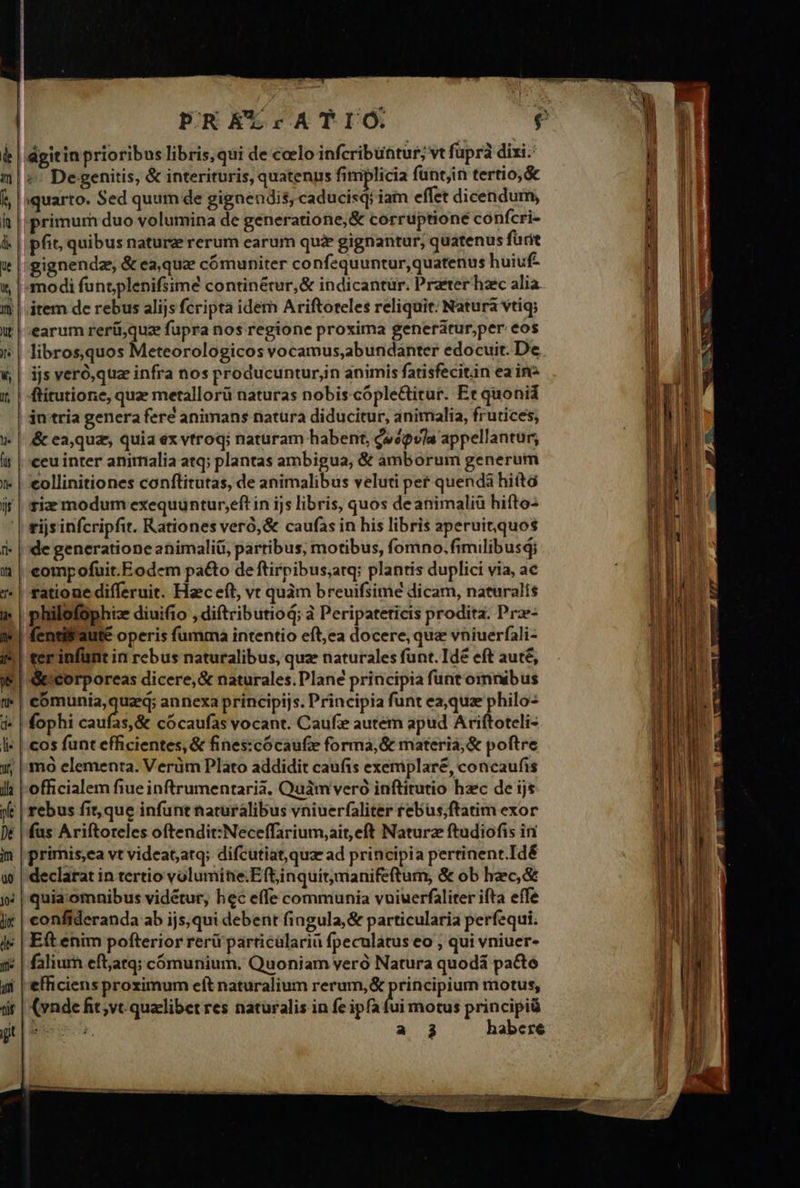 PRÆFATIO.
ágit in prioribus libris, qui de cœlo inſcribuntur, vt ſuprà dixi.
De genitis, & interituris, quatenus ſimplicia ſunt, in tertio, &
quarto. Sed quum de gignendis, caducisq; iam eſſet dicendum,
primum duo volumina de generatione, & corruptione cõſcri-
pſit, quibus naturæ rerum earum quæ gignantur, quatenus ſunt
gignendæ, & ea, quæ cómuniter conſequuntur, quatenus huiuſ-
modi ſunt, pleniſsimè continẽtur, & indicantur. Præter hæc alia
item de rebus alijs ſcripta idem Ariſtoteles reliquit. Naturã vtiq;
earum rerũ, quæ ſupra nos regione proxima generãtur, per eos
libros, quos Meteorologicos vocamus, abundanter edocuit. De
ijs verò, quæ infra nos producuntur, in animis ſatisfecit, in ea in-
ſtitutione, quæ metallorũ naturas nobis cõplectitur. Et quoniã
in tria genera ferè animans natura diducitur, animalia, frutices,
& ea, quæ, quia ex vtroq; naturam habent, ζωόφυτα appellantur,
ceu inter animalia atq; plantas ambigua, & amborum generum
collinitiones conſtitutas, de animalibus veluti per quendã hiſto
riæ modum exequuntur, eſt in ijs libris, quos de animaliũ hiſto-
rijs inſcripſit. Rationes verò, & cauſas in his libris aperuit, quos
de generatione animaliũ, partibus, motibus, ſomno, ſimilibusq;
compoſuit. Eodem pacto de ſtirpibus, atq; plantis duplici via, ac
ratione differuit. Hæc eſt, vt quàm breuiſsimè dicam, naturalis
philoſophiæ diuiſio, diſtributioq́; à Peripateticis prodita. Præ-
ſentis autẽ operis ſumma intentio eſt, ea docere, quæ vniuerſali-
ter inſunt in rebus naturalibus, quæ naturales ſunt. Idẽ eſt autẽ,
& corporeas dicere, & naturales. Planè principia ſunt omnibus
cõmunia, quæq; annexa principijs. Principia ſunt ea, quæ philo-
ſophi cauſas, & cócauſas vocant. Cauſæ autem apud Ariſtoteli-
cos ſunt efficientes, & fines: cócauſæ forma, & materia, & poſtre
mò elementa. Verùm Plato addidit cauſis exemplarẽ, concauſis
officialem ſiue inſtrumentariã. Quàm verò inſtitutio hæc de ijs
rebus ſit, que inſunt naturalibus vniuerſaliter rebus, ſtatim exor
ſus Ariſtoteles oſtendit: Neceſſarium, ait, eſt Naturæ ſtudioſis in
primis, ea vt videat, atq; diſcutiat, quæ ad principia pertinent. Idẽ
declarat in tertio volumine. Eſt, inquit, manifeſtum, & ob hæc, &
quia omnibus vidẽtur, hęc eſſe communia vniuerſaliter iſta eſſe
conſideranda ab ijs, qui debent ſingula, & particularia perſequi.
Eſt enim poſterior rerũ particulariũ ſpeculatus eo, qui vniuer-
ſalium eſt, atq; cómunium. Quoniam verò Natura quodã pacto
efficiens proximum eſt naturalium rerum, & principium motus,
(vnde fit, vt quælibet res naturalis in ſe ipſa ſui motus principiũ
a 3 habere